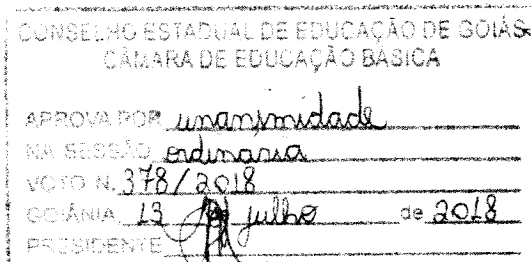 CONSELHO ESTADUAL DE EDUCAÇÃO DE GOIÁS
CÂMARA DE EDUCAÇÃO BÁSICA
APROVA POR unanimidade
NA SESSÃO ordinaria
VOTO N. 378/2018
GOIÂNIA, 13 julho de 2018
PRESIDENTE